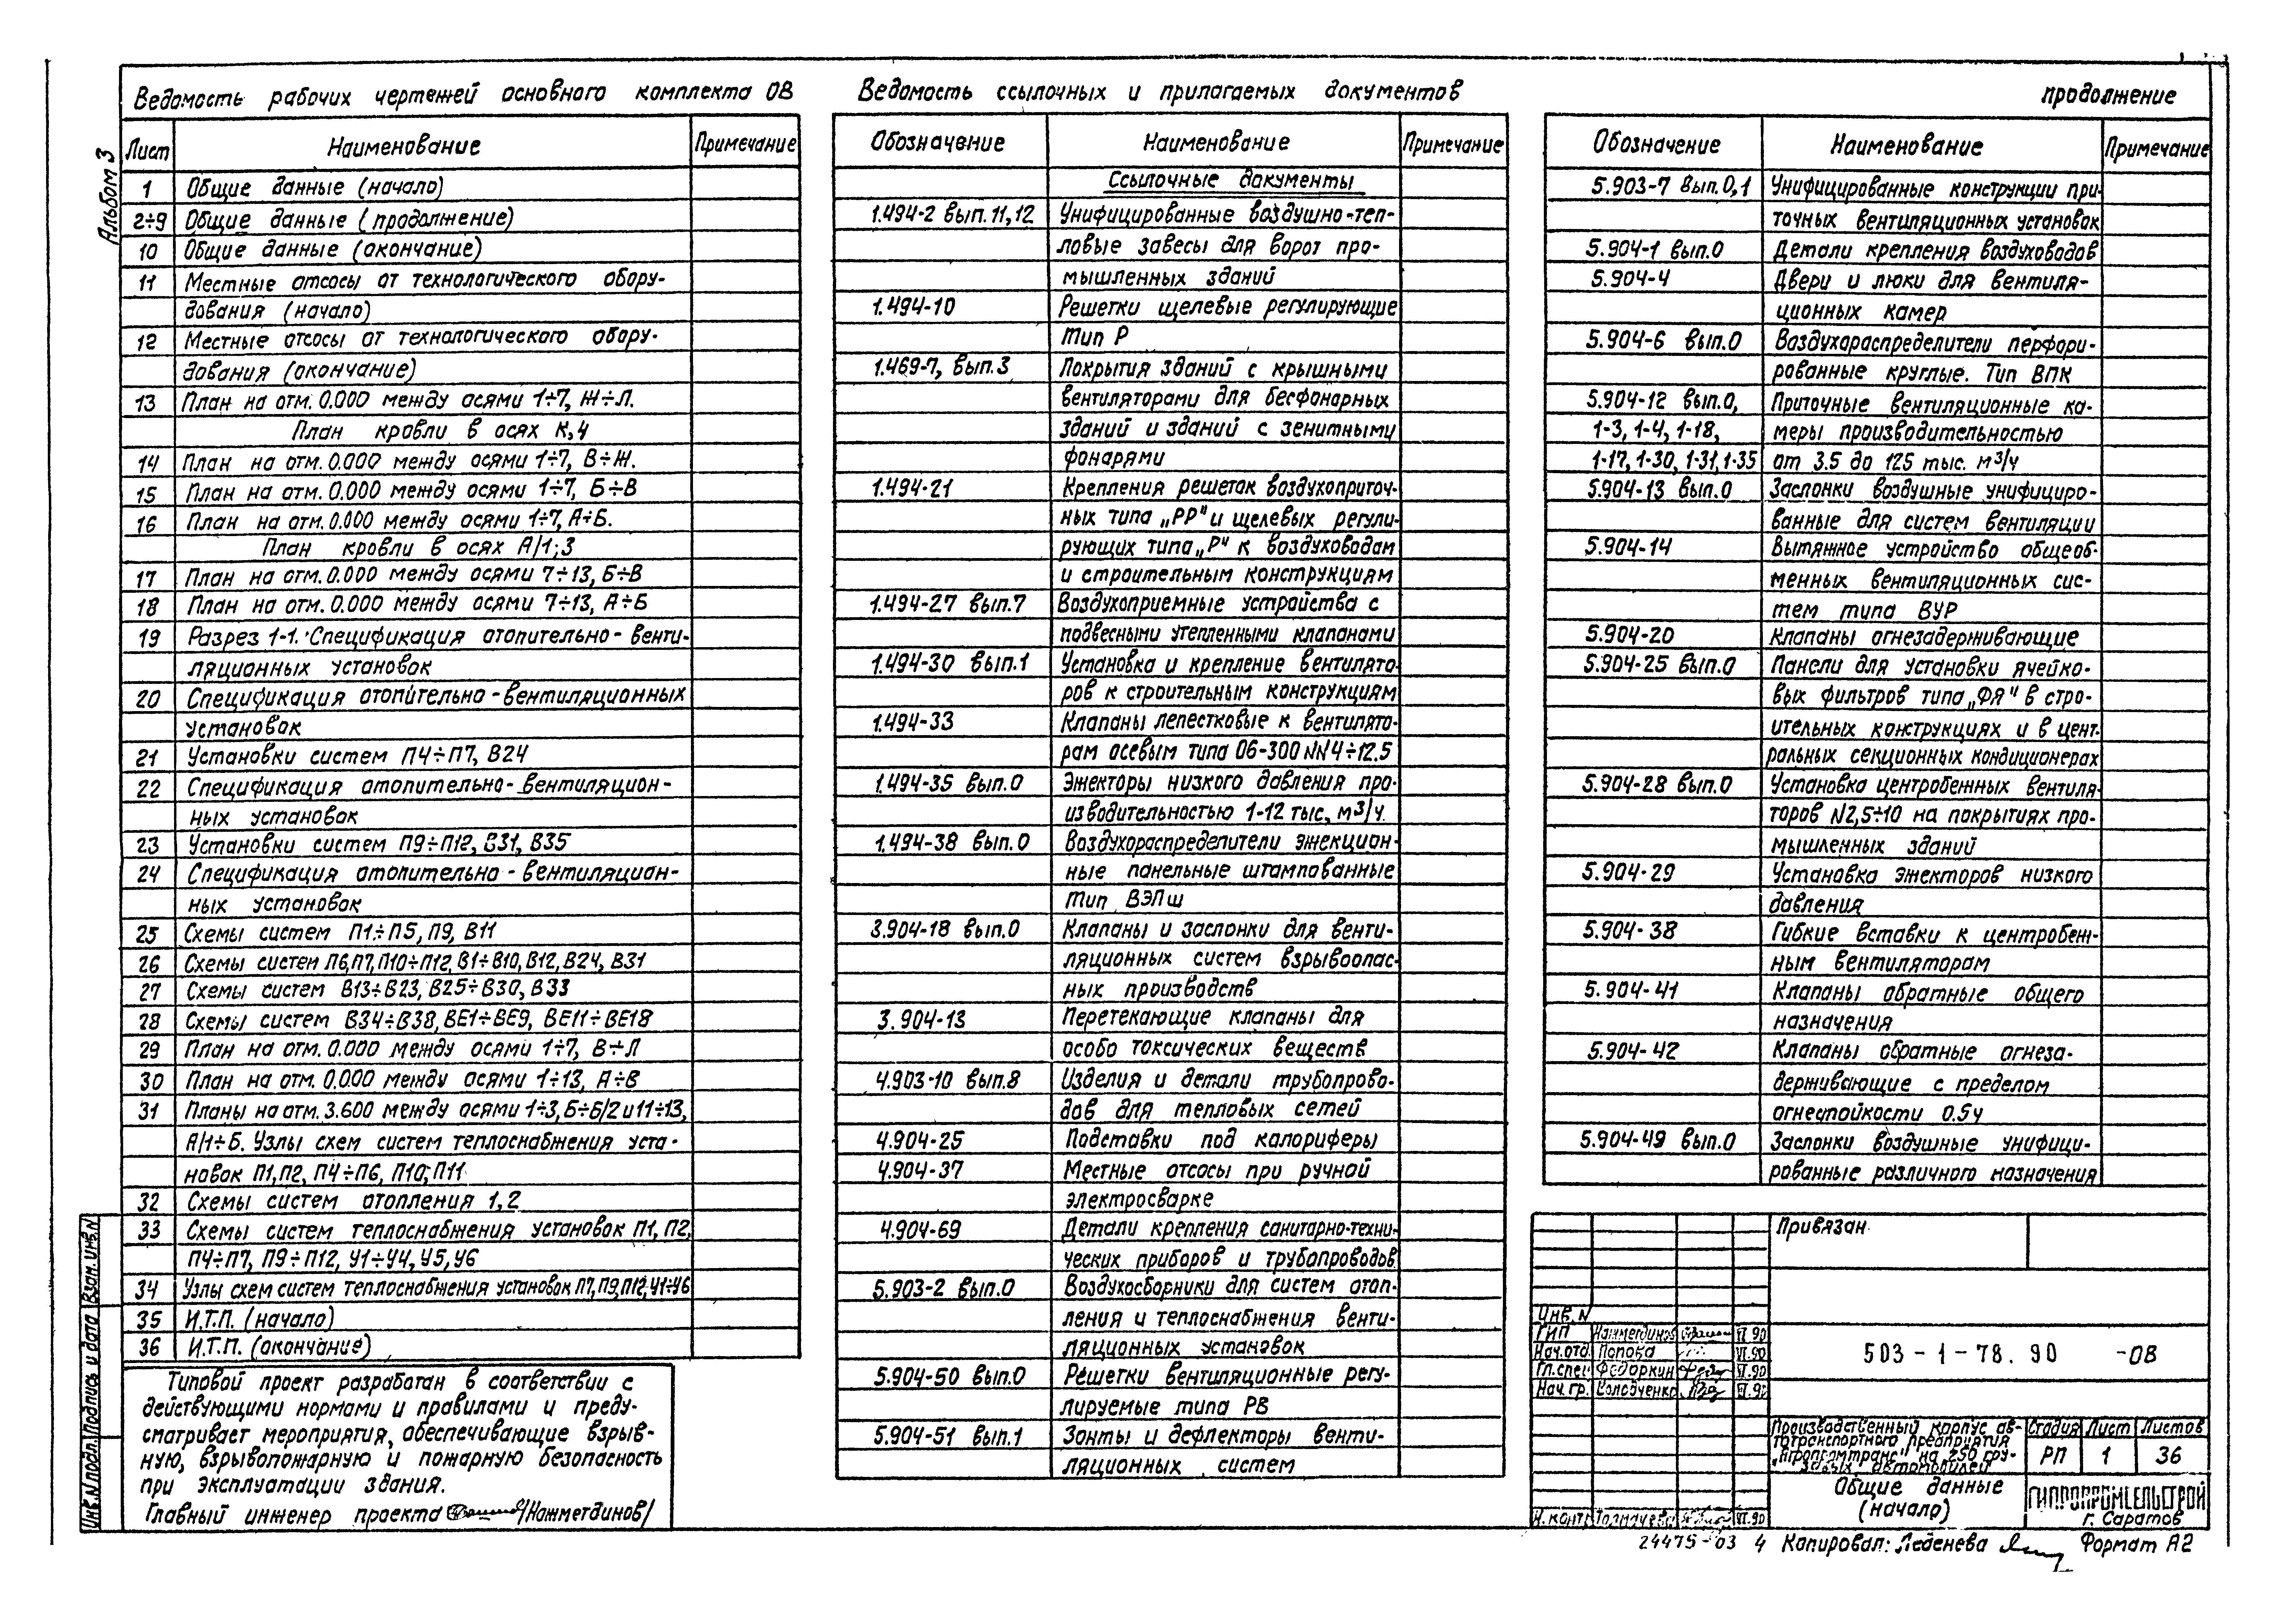 Альбом 3
Ведомость рабочих чертежей основного комплекта ОВ
Лист Наименование Примечание
1 Общие данные (начало)
2÷9 Общие данные (продолжение)
10 Общие данные (окончание)
11 Местные отсосы от технологического обору-
дования (начало)
12 Местные отсосы от технологического обору-
дования (окончание)
13 План на отм. 0.000 между осями 1÷7, Ж÷Л.
План кровли в осях К,4
14 План на отм. 0.000 между осями 1÷7, В÷Ж.
15 План на отм. 0.000 между осями 1÷7, Б÷В
16 План на отм. 0.000 между осями 1÷7, А÷Б.
План кровли в осях А/1; 3
17 План на отм. 0.000 между осями 7÷13, Б÷В
18 План на отм. 0.000 между осями 7÷13, А÷Б
19 Разрез 1-1. Спецификация отопительно-венти-
ляционных установок
20 Спецификация отопительно-вентиляционных
установок
21 Установки систем П4÷П7, В24
22 Спецификация отопительно-вентиляцион-
ных установок
23 Установки систем П9÷П12, В31, В35
24 Спецификация отопительно-вентиляцион-
ных установок
25 Схемы систем П1÷П5, П9, В11
26 Схемы систем П6,П7,П10÷П12,В1÷В10,В12,В24,В31
27 Схемы систем В13÷В23, В25÷В30, В33
28 Схемы систем В34÷В38, ВЕ1÷ВЕ9, ВЕ11÷ВЕ18
29 План на отм. 0.000 между осями 1÷7, В÷Л
30 План на отм. 0.000 между осями 1÷13, А÷В
31 Планы на отм. 3.600 между осями 1÷3, Б÷Б/2 и 11÷13,
А/1÷Б. Узлы схем систем теплоснабжения уста-
новок П1,П2, П4÷П6, П10,П11
32 Схемы систем отопления 1,2
33 Схемы систем теплоснабжения установок П1, П2,
П4÷П7, П9÷П12, У1÷У4, У5, У6
34 Узлы схем систем теплоснабжения установок П7,П9,П12,У1÷У6
35 И.Т.П. (начало)
36 И.Т.П. (окончание)
Типовой проект разработан в соответствии с
действующими нормами и правилами и преду-
сматривает мероприятия, обеспечивающие взрыв-
ную, взрывопожарную и пожарную безопасность
при эксплуатации здания.
Главный инженер проекта /Нажметдинов/
Инв.N подл. Подпись и дата Взам. инв.N
Ведомость ссылочных и прилагаемых документов
Обозначение Наименование Примечание
Ссылочные документы
1.494-2 вып. 11,12 Унифицированные воздушно-теп-
ловые завесы для ворот про-
мышленных зданий
1.494-10 Решетки щелевые регулирующие
Тип Р
1.469-7, вып.3 Покрытия зданий с крышными
вентиляторами для бесфонарных
зданий и зданий с зенитными
фонарями
1.494-21 Крепления решеток воздухоприточ-
ных типа „РР" и щелевых регули-
рующих типа „Р" к воздуховодам
и строительным конструкциям
1.494-27 вып.7 Воздухоприемные устройства с
подвесными утепленными клапанами
1.494-30 вып.1 Установка и крепление вентилято-
ров к строительным конструкциям
1.494-33 Клапаны лепестковые к вентилято-
рам осевым типа 06-300 NN4÷12.5
1.494-35 вып.0 Эжекторы низкого давления про-
изводительностью 1-12 тыс, м3/ч
1.494-38 вып.0 Воздухораспределители эжекцион-
ные панельные штампованные
Тип ВЭПш
3.904-18 вып.0 Клапаны и заслонки для венти-
ляционных систем взрывоопас-
ных производств
3.904-13 Перетекающие клапаны для
особо токсических веществ
4.903-10 вып.8 Изделия и детали трубопрово-
дов для тепловых сетей
4.904-25 Подставки под калориферы
4.904-37 Местные отсосы при ручной
электросварке
4.904-69 Детали крепления санитарно-техни-
ческих приборов и трубопроводов
5.903-2 вып.0 Воздухосборники для систем отоп-
ления и теплоснабжения венти-
ляционных установок
5.904-50 вып.0 Решетки вентиляционные регу-
лируемые типа РВ
5.904-51 вып.1 Зонты и дефлекторы венти-
ляционных систем
продолжение
Обозначение Наименование Примечание
5.903-7 вып.0,1 Унифицированные конструкции при-
точных вентиляционных установок
5.904-1 вып.0 Детали крепления воздуховодов
5.904-4 Двери и люки для вентиля-
ционных камер
5.904-6 вып.0 Воздухораспределители перфори-
рованные круглые. Тип ВПК
5.904-12 вып.0, Приточные вентиляционные ка-
1-3, 1-4, 1-18, меры производительностью
1-17, 1-30, 1-31, 1-35 от 3.5 до 125 тыс. м3/ч
5.904-13 вып.0 Заслонки воздушные унифициро-
ванные для систем вентиляции
5.904-14 Вытяжное устройство общеоб-
менных вентиляционных сис-
тем типа ВУР
5.904-20 Клапаны огнезадерживающие
5.904-25 вып.0 Панели для установки ячейко-
вых фильтров типа „ФЯ" в стро-
ительных конструкциях и в цент-
ральных секционных кондиционерах
5.904-28 вып.0 Установка центробежных вентиля-
торов N2,5÷10 на покрытиях про-
мышленных зданий
5.904-29 Установка эжекторов низкого
давления
5.904-38 Гибкие вставки к центробеж-
ным вентиляторам
5.904-41 Клапаны обратные общего
назначения
5.904-42 Клапаны обратные огнеза-
держивающие с пределом
огнестойкости 0.5ч
5.904-49 вып.0 Заслонки воздушные унифици-
рованные различного назначения
Привязан
Инв. N
ГИП Нажметдинов VI 90
Нач.отд. Попова VI.90
Гл.спец Федоркин VI.90
Нач. гр. Колодченко VI.90
Н. контр Толмачева VI.90
503-1-78.90 -ОВ
Производственный корпус ав-
тотранспортного предприятия
„Агропромтранс" на 250 гру-
зовых автомобилей
Стадия Лист Листов
РП 1 36
Общие данные
(начало)
ГИПРОПРОМСЕЛЬСТРОЙ
г. Саратов
24475-03 4 Копировал: Леденева Формат А2